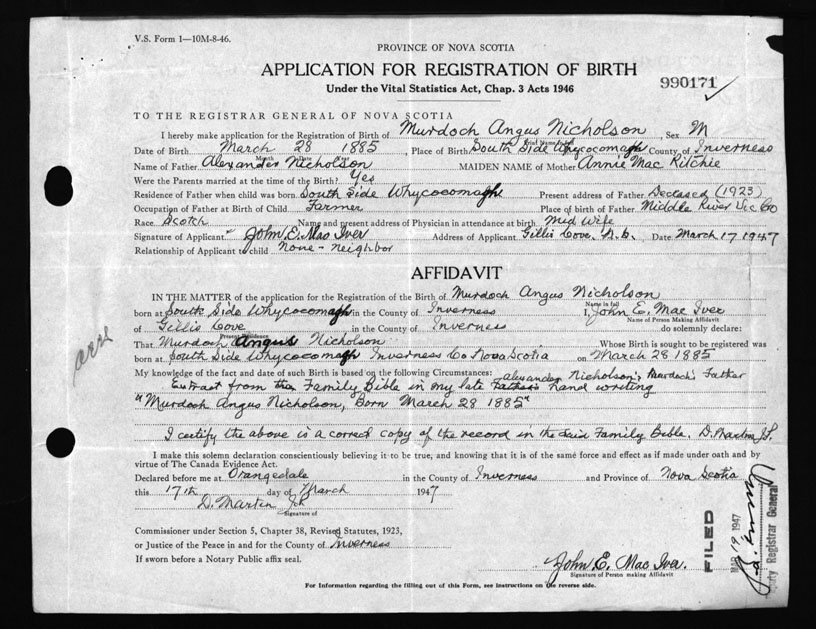 V.S. Form 1—10M-8-46.
PROVINCE OF NOVA SCOTIA
APPLICATION FOR REGISTRATION OF BIRTH
990171
Under the Vital Statistics Act, Chap. 3 Acts 1946
TO THE REGISTRAR GENERAL OF NOVA SCOTIA
I hereby make application for the Registration of Birth of Murdoch Angus Nicholson, Sex M
Date of Birth March 28 1885, Place of Birth South Side Whycocomagh County of Inverness
Month Date Year
Name of Father Alexander Nicholson MAIDEN NAME of Mother Annie Mac Ritchie
Were the Parents married at the time of the Birth? Yes
Residence of Father when child was born South Side Whycocomagh Present address of Father Deceased (1923)
Occupation of Father at Birth of Child Farmer Place of birth of Father Middle River Vic Co
Race Scotch Name and present address of Physician in attendance at birth Mid Wife
Signature of Applicant John E. Mac Iver Address of Applicant Gillis Cove, N.S., Date March 17 1947
Relationship of Applicant to child None - Neighbor
AFFIDAVIT
IN THE MATTER of the application for the Registration of the Birth of Murdoch Angus Nicholson
Name in full
born at South Side Whycocomagh in the County of Inverness I, John E. Mac Iver
Name of Person Making Affidavit
of Gillis Cove in the County of Inverness do solemnly declare:
Present Residence
That Murdoch Angus Nicholson Whose Birth is sought to be registered was
born at South Side Whycocomagh Inverness Co Nova Scotia on March 28 1885
My knowledge of the fact and date of such Birth is based on the following Circumstances: Alexander Nicholson's, Murdoch's Father
Extract from the Family Bible in my late Father's hand writing
"Murdoch Angus Nicholson, Born March 28 1885"
I certify the above is a correct copy of the record in the said Family Bible. D. Martin J.P.
I make this solemn declaration conscientiously believing it to be true, and knowing that it is of the same force and effect as if made under oath and by
virtue of The Canada Evidence Act.
Declared before me at Orangedale in the County of Inverness and Province of Nova Scotia
this 17th day of March 1947
D. Martin
Signature of
Commissioner under Section 5, Chapter 38, Revised Statutes, 1923,
or Justice of the Peace in and for the County of Inverness
If sworn before a Notary Public affix seal.
John E. Mac Iver.
Signature of Person making Affidavit
For Information regarding the filling out of this Form, see instructions on the reverse side.
FILED
MAR 19 1947
Deputy Registrar General